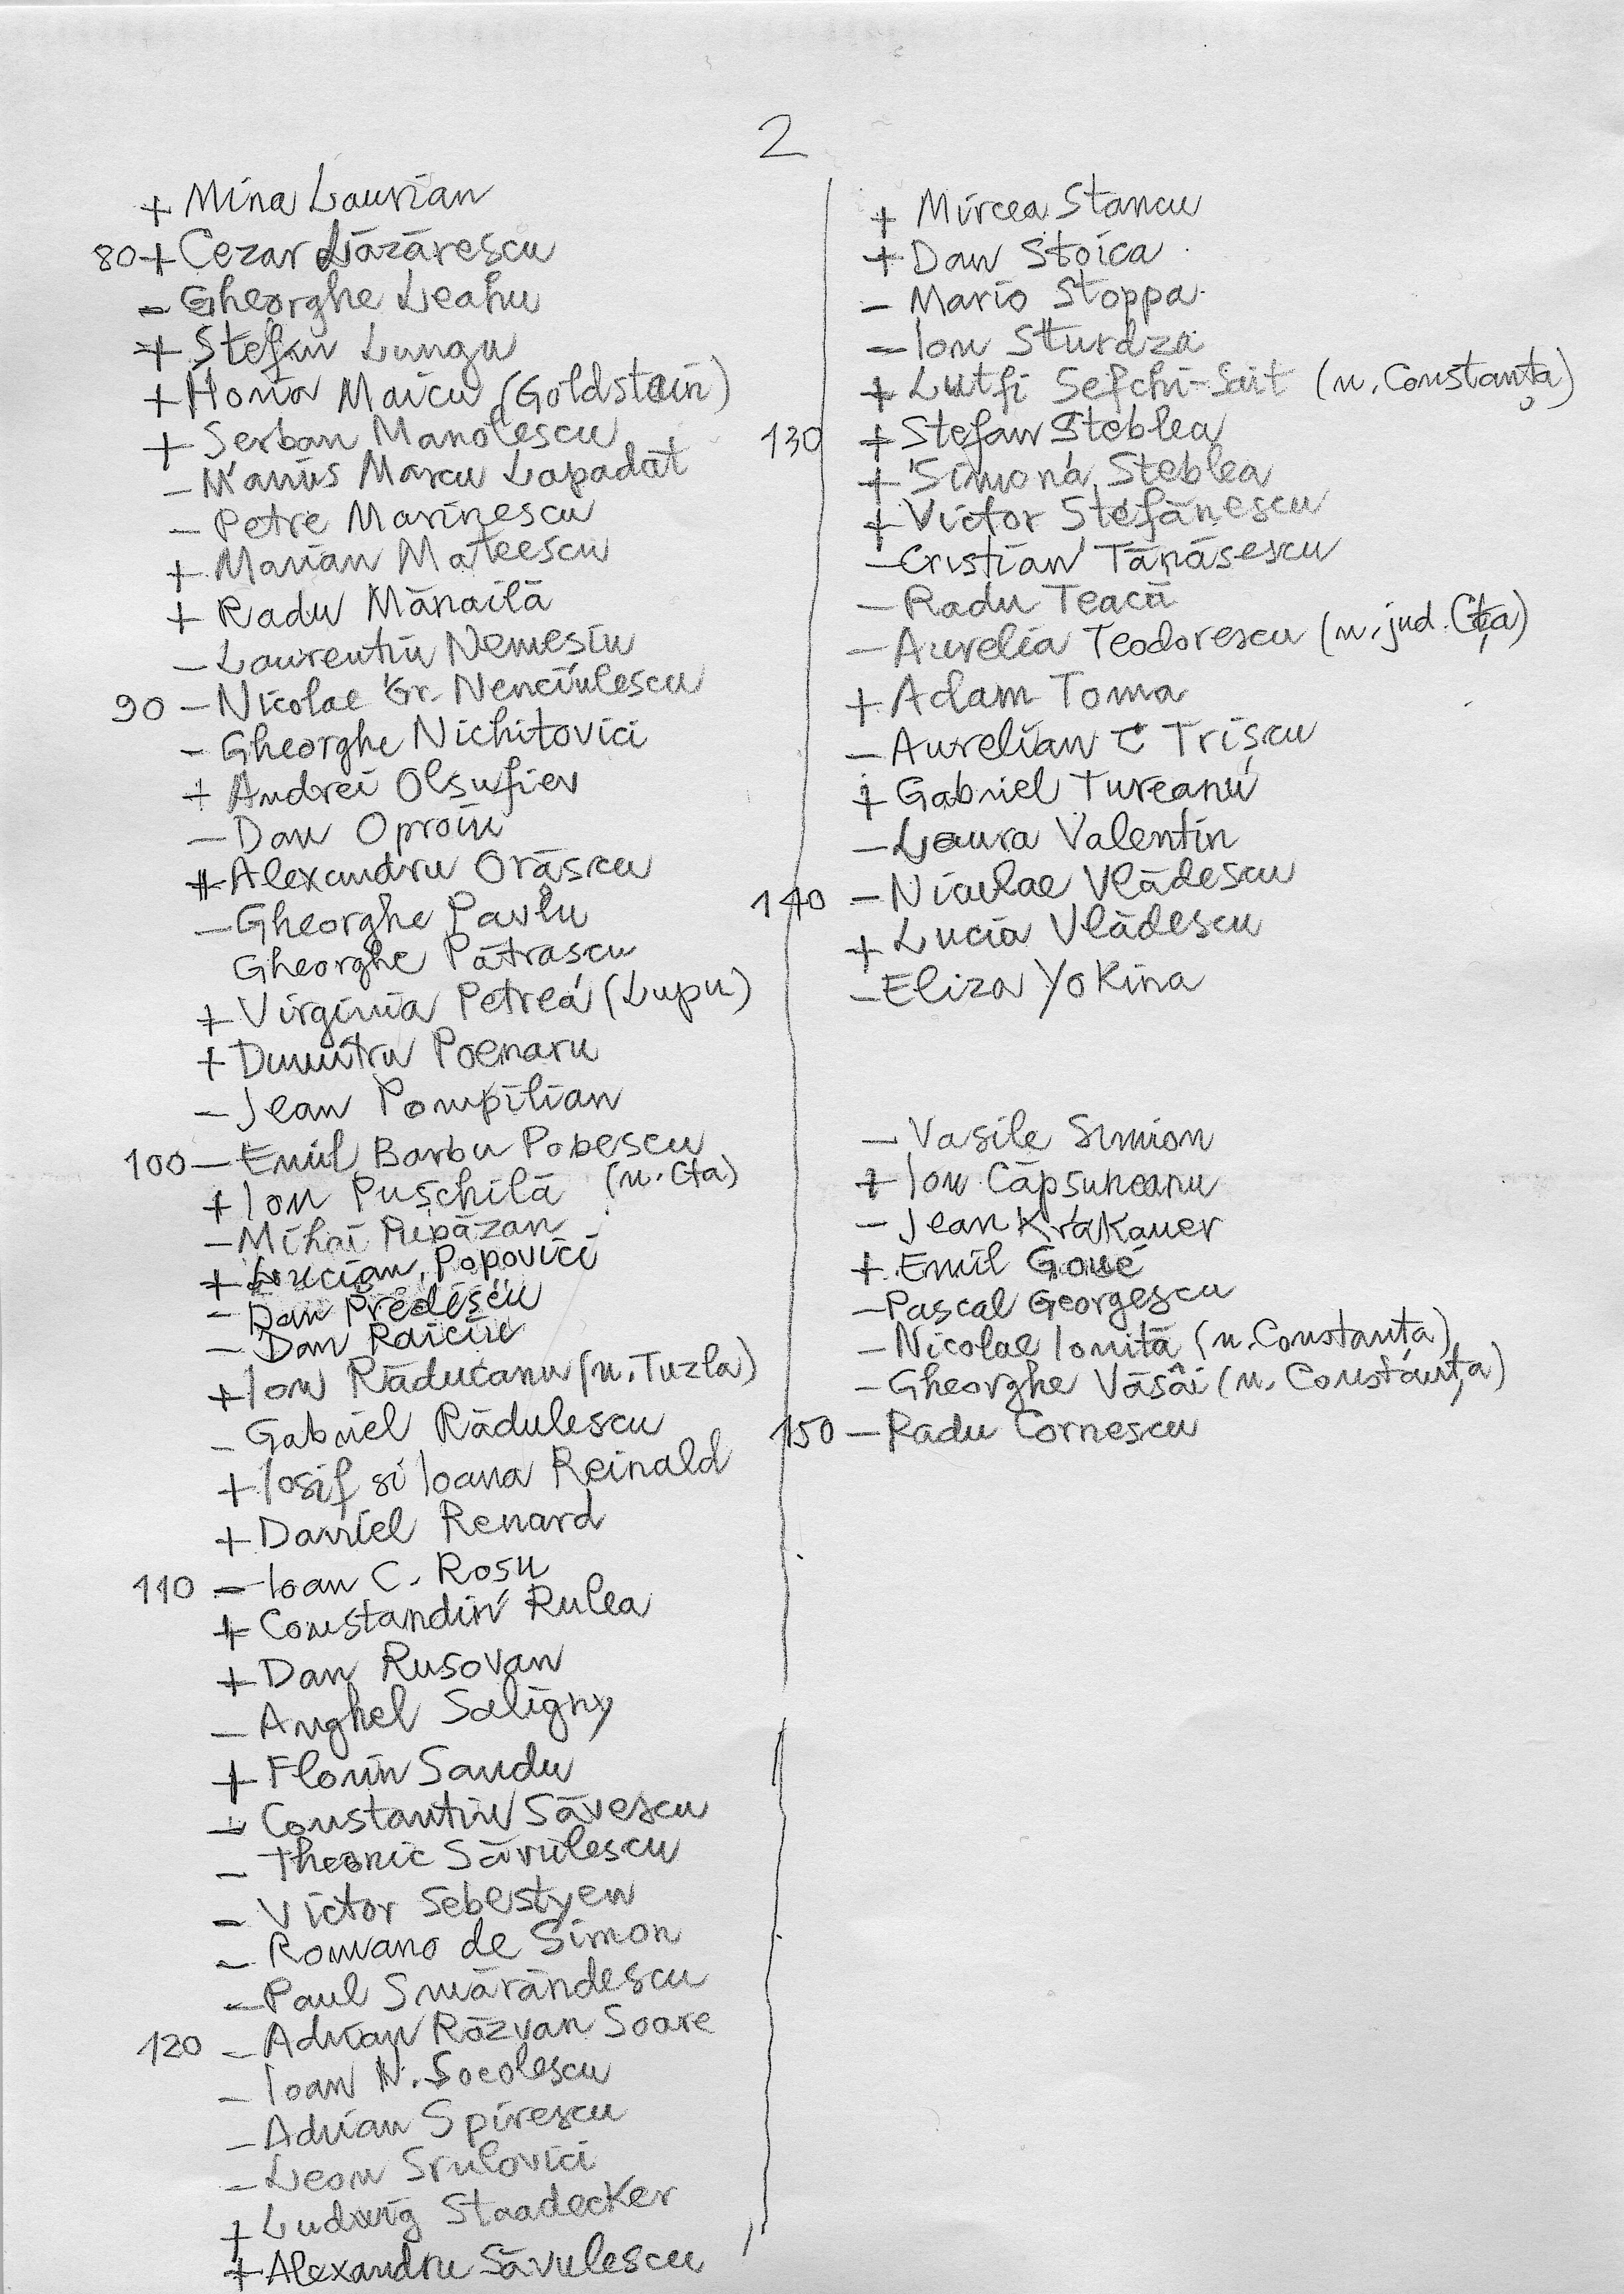 2
+ Mina Laurian
80 + Cezar Lăzărescu
- Gheorghe Leahu
+ Stefan Lungu
+ Horia Maicu (Goldstein)
+ Serban Manolescu
- Marius Marcu Lapadat
- Petre Marinescu
+ Marian Mateescu
+ Radu Mănăilă
- Laurentiu Nemesiu
90 - Nicolae Gr. Nenciulescu
- Gheorghe Nichitovici
+ Andrei Olsufiev
- Dan Oproiu
+ Alexandru Orăscu
- Gheorghe Pavlu
Gheorghe Pătrascu
+ Virginia Petrea (Lupu)
+ Dumitru Poenaru
- Jean Pompilian
100 - Emil Barbu Popescu
+ Ion Pușchilă (n. Cta)
- Mihai
+ Lucian Popovici
- Dan Predescu
- Dan Raiciu
+ Ion Răducanu (n. Tuzla)
- Gabriel Rădulescu
+ Iosif si Ioana Reinald
+ Daniel Renard
110 - Ioan C. Rosu
+ Constandin Rulea
+ Dan Rusovan
- Anghel Saligny
+ Florin Sandu
- Constantin Săvescu
- Theonic Săvulescu
- Victor Sebestyen
- Romano de Simon
- Paul Smărăndescu
120 - Adrian Răzvan Soare
- Ioan N. Socolescu
- Adrian Spirescu
- Leon Srulovici
+ Ludwig Staadecker
+ Alexandru Săvulescu
+ Mircea Stancu
+ Dan Stoica
- Mario Stoppa
- Ion Sturdza
+ Lutfi Sefchi-Sait (n. Constanța)
130 + Stefan Steblea
+ Simona Steblea
+ Victor Stefănescu
- Cristian Tănăsescu
- Radu Teacă
- Aurelia Teodorescu (n. jud. Cța)
+ Adam Toma
- Aurelian T Trișcu
+ Gabriel Tureanu
- Laura Valentin
140 - Niculae Vlădescu
+ Lucia Vlădescu
- Eliza Yokina
- Vasile Simion
+ Ion Căpșuneanu
- Jean Krakauer
+ Emil Goué
- Pascal Georgescu
- Nicolae Ionită (n. Constanta)
- Gheorghe Văsâi (n. Constanța)
150 - Radu Cornescu